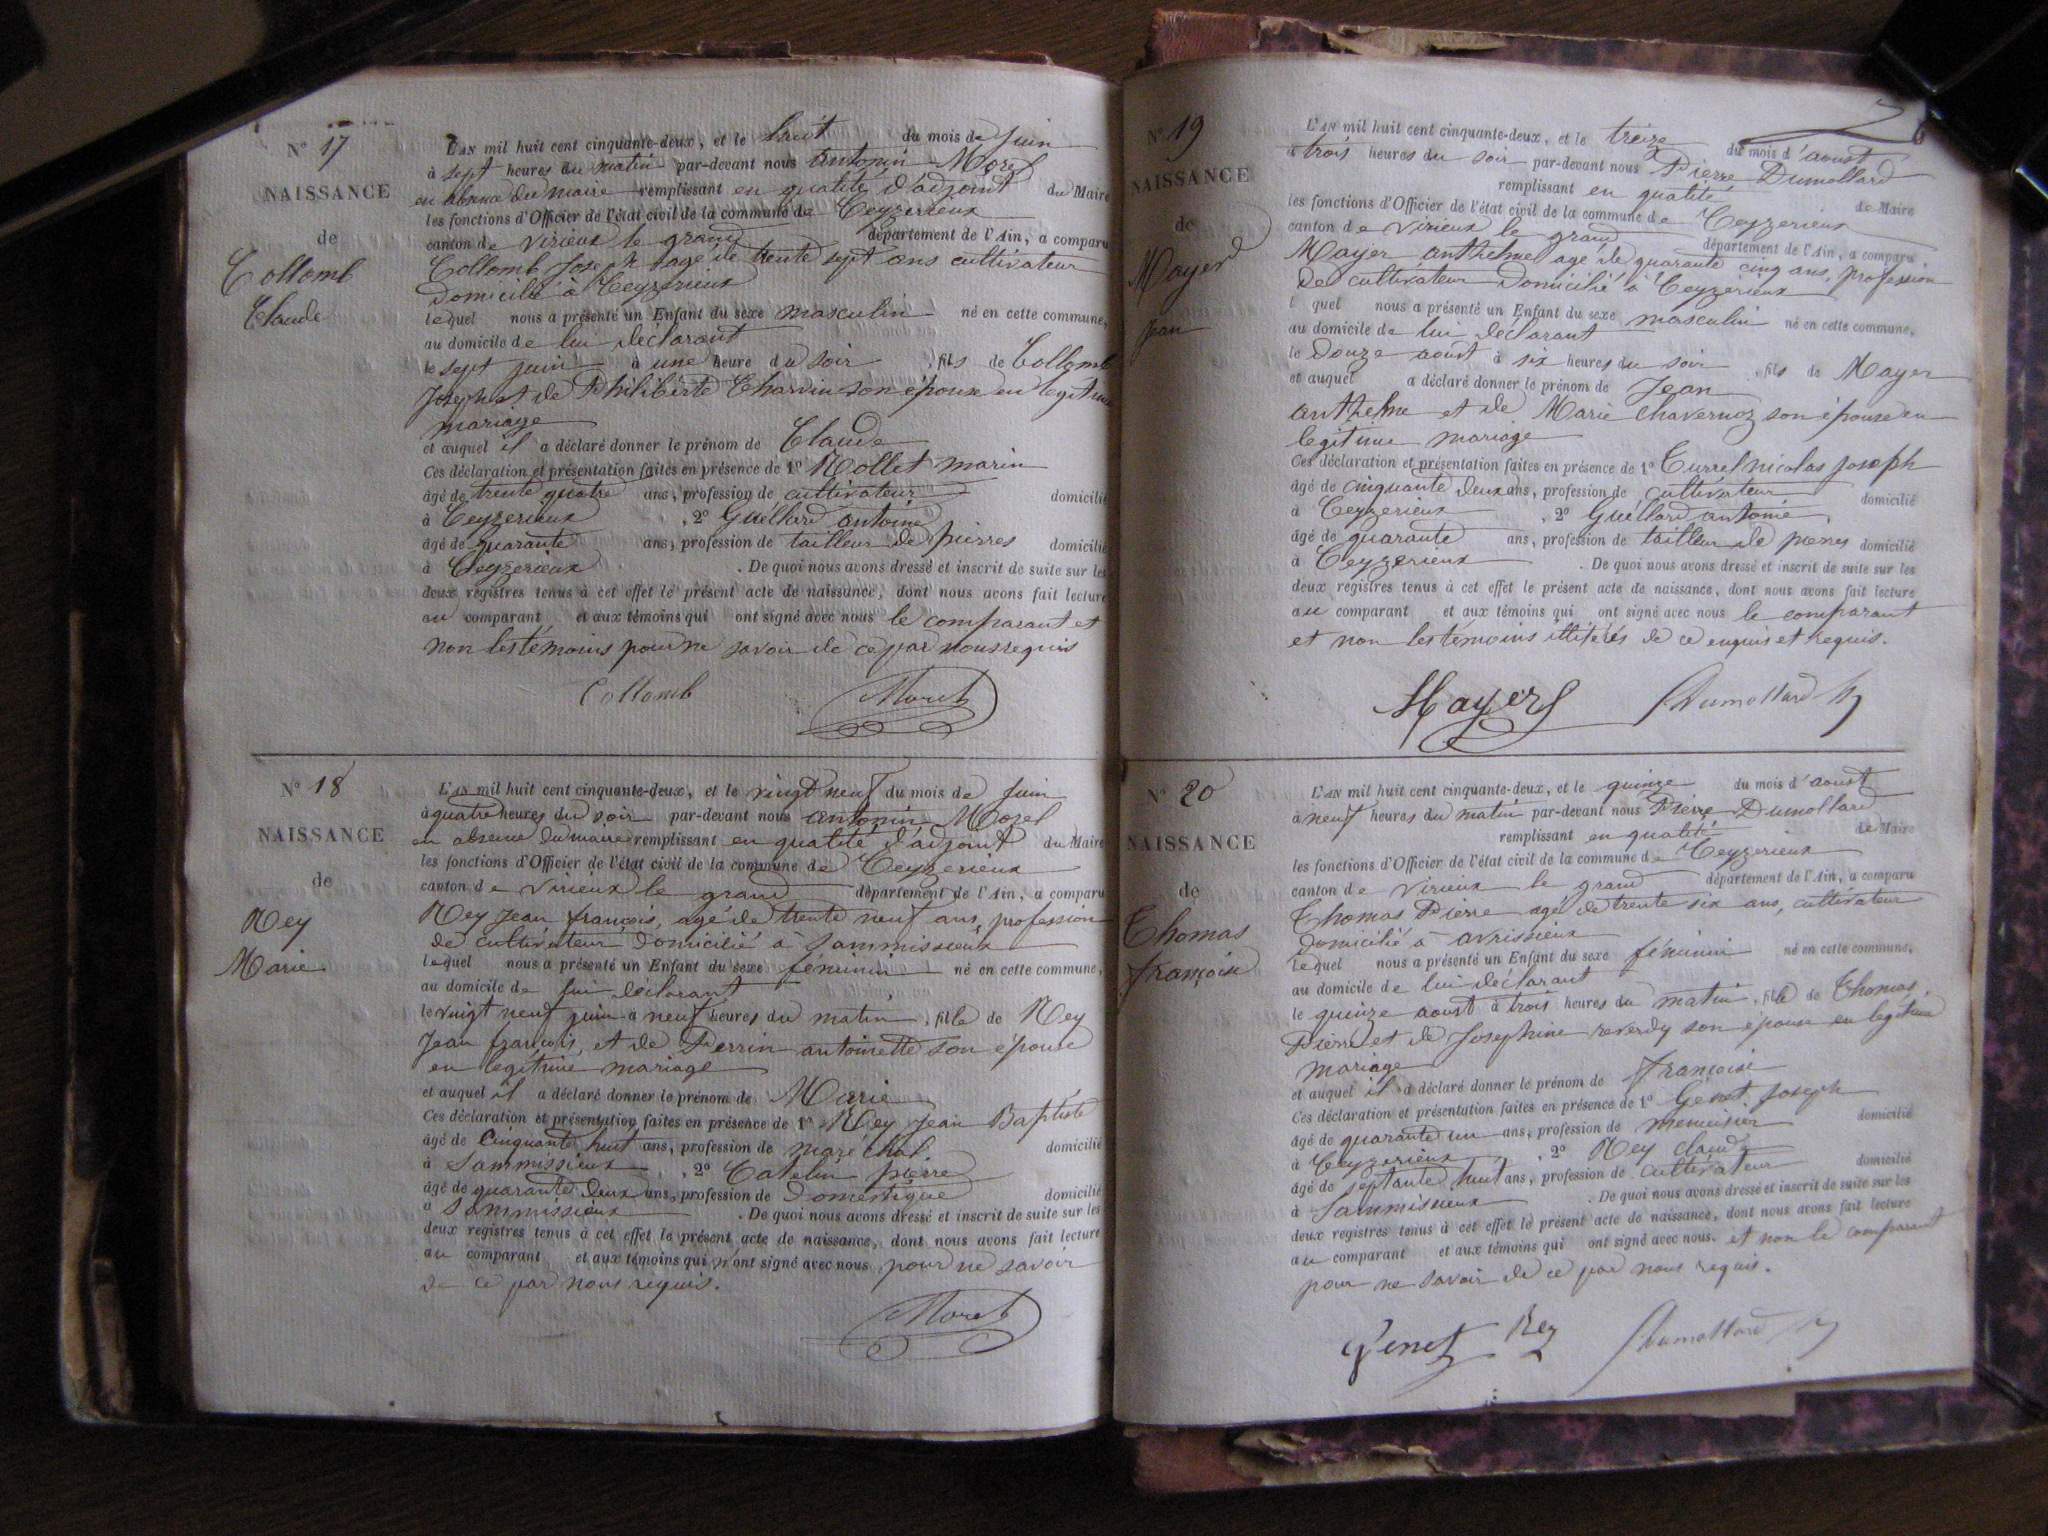 N° 17
NAISSANCE
de
Collomb
Claude
L'AN mil huit cent cinquante-deux, et le huit du mois de juin
à sept heures du matin par-devant nous Antonin Morel
en absence du maire remplissant en qualité d'adjoint du Maire
les fonctions d'Officier de l'état civil de la commune de Ceyzerieux
canton de Virieux le grand département de l'Ain, a comparu
Collomb Joseph agé de trente sept ans cultivateur
Domicilié à Ceyzerieux
lequel nous a présenté un Enfant du sexe masculin né en cette commune,
au domicile de lui déclarant
le sept juin à une heure du soir, fils de Collomb
Joseph et de Philiberte Charvin son épouse en legitime
mariage
et auquel il a déclaré donner le prénom de Claude
Ces déclaration et présentation faites en présence de 1° Mollet marin
âgé de trente quatre ans, profession de cultivateur domicilié
à Ceyzerieux, 2° Guillard antoine
âgé de quarante ans, profession de tailleur de pierres domicilié
à Ceyzerieux. De quoi nous avons dressé et inscrit de suite sur les
deux registres tenus à cet effet le présent acte de naissance, dont nous avons fait lecture
au comparant et aux témoins qui ont signé avec nous le comparant et
non les témoins pour ne savoir de ce par nous requis
Collomb Morel
N° 18
NAISSANCE
de
Rey
Marie
L'AN mil huit cent cinquante-deux, et le vingt neuf du mois de juin
à quatre heures du soir par-devant nous antonin Morel
en absence du maire remplissant en qualité d'adjoint du Maire
les fonctions d'Officier de l'état civil de la commune de Ceyzerieux
canton de Virieux le grand département de l'Ain, a comparu
Rey Jean françois, agé de trente neuf ans, profession
de cultivateur domicilié à Sammissieux
lequel nous a présenté un Enfant du sexe féminin né en cette commune,
au domicile de lui déclarant
le vingt neuf juin à neuf heures du matin, fille de Rey
Jean françois, et de Perrin antoinette son épouse
en legitime mariage
et auquel il a déclaré donner le prénom de Marie
Ces déclaration et présentation faites en présence de 1° Rey Jean Baptiste
âgé de cinquante huit ans, profession de maréchal domicilié
à Sammissieux, 2° Catelin pierre
âgé de quarante deux ans, profession de Domestique domicilié
à Sammissieux. De quoi nous avons dressé et inscrit de suite sur les
deux registres tenus à cet effet le présent acte de naissance, dont nous avons fait lecture
au comparant et aux témoins qui n'ont signé avec nous pour ne savoir
de ce par nous requis.
Morel
N° 19
NAISSANCE
de
Mayer
Jean
L'AN mil huit cent cinquante-deux, et le treize du mois d'aoust
à trois heures du soir par-devant nous Pierre Dumollard
remplissant en qualité de Maire
les fonctions d'Officier de l'état civil de la commune de Ceyzerieux
canton de Virieux le grand département de l'Ain, a comparu
Mayer anthelme agé de quarante cinq ans, profession
de cultivateur Domicilié à Ceyzerieux
l quel nous a présenté un Enfant du sexe masculin né en cette commune,
au domicile de lui déclarant
le douze aoust à six heures du soir, fils de Mayer
et auquel a déclaré donner le prénom de Jean
anthelme et de Marie Chavernoz son épouse en
legitime mariage
Ces déclaration et présentation faites en présence de 1° Currel nicolas joseph
âgé de cinquante deux ans, profession de cultivateur domicilié
à Ceyzerieux, 2° Guillard antoine,
âgé de quarante ans, profession de tailleur de pierres domicilié
à Ceyzerieux. De quoi nous avons dressé et inscrit de suite sur les
deux registres tenus à cet effet le présent acte de naissance, dont nous avons fait lecture
au comparant et aux témoins qui ont signé avec nous le comparant
et non les témoins illitérés de ce enquis et requis.
Mayer Dumollard
N° 20
NAISSANCE
de
Thomas
françoise
L'AN mil huit cent cinquante-deux, et le quinze du mois d'aoust
à neuf heures du matin par-devant nous Pierre Dumollard
remplissant en qualité de Maire
les fonctions d'Officier de l'état civil de la commune de Ceyzerieux
canton de Virieux le grand département de l'Ain, a comparu
Thomas Pierre agé de trente six ans, cultivateur
domicilié à avrissieux
lequel nous a présenté un Enfant du sexe féminin né en cette commune,
au domicile de lui déclarant
le quinze aoust à trois heures du matin, fille de Thomas
Pierre et de Josephine reverdy son épouse en legitime
mariage
et auquel il a déclaré donner le prénom de françoise
Ces déclaration et présentation faites en présence de 1° Genet Joseph
âgé de quarante un ans, profession de menuisier domicilié
à Ceyzerieux, 2° Rey claude
âgé de septante huit ans, profession de cultivateur domicilié
à Sammissieux. De quoi nous avons dressé et inscrit de suite sur les
deux registres tenus à cet effet le présent acte de naissance, dont nous avons fait lecture
au comparant et aux témoins qui ont signé avec nous. et non le comparant
pour ne savoir de ce par nous requis.
Genet Rey Dumollard